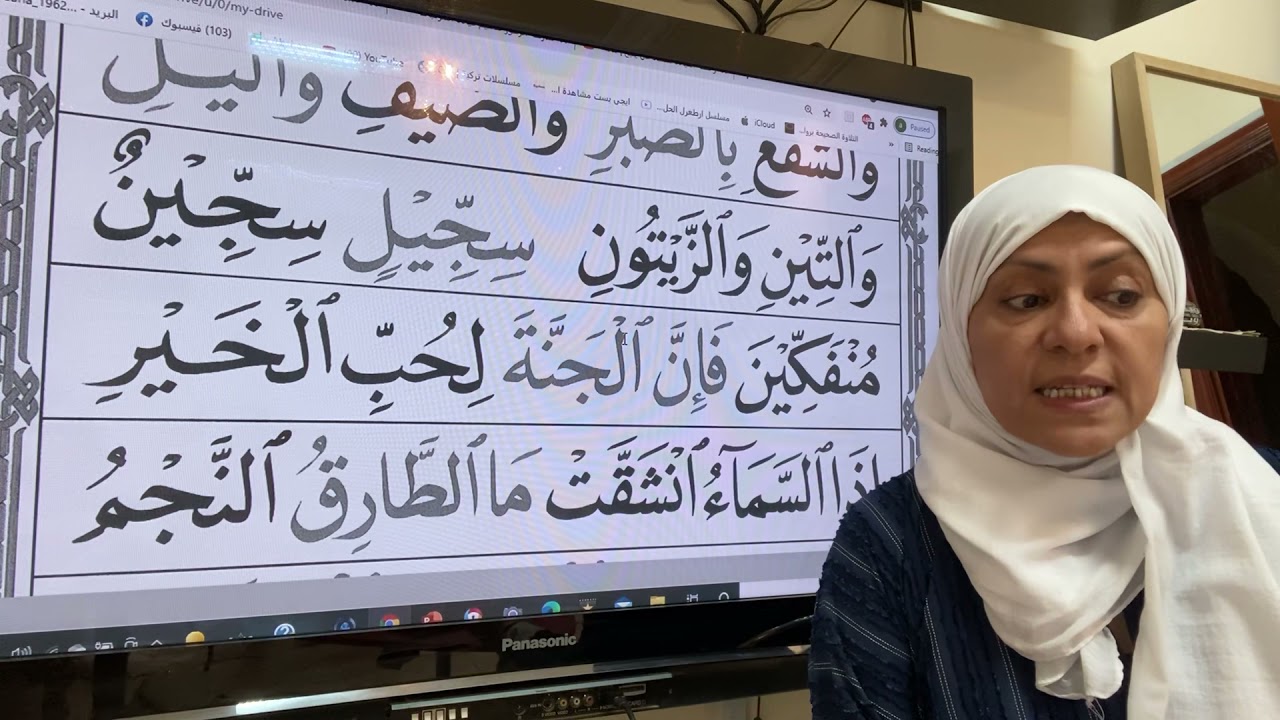 ive/u/0/my-drive
البريد - ...una_1962
(103) فيسبوك
مسلسلات تركي
ايجي بست مشاهدة ا...
مسلسل ارطغرل الحل...
iCloud
التلاوة الصحيحة بروا...
Paused
»
Reading
وَالشَّفْعِ بِالصَّبْرِ وَالصَّيْفِ وَاللَّيْلِ
وَٱلتِّيْنِ وَٱلزَّيْتُونِ سِجِّيْلٍ سِجِّيْنٌ
مُنْفَكِّيْنَ فَإِنَّ ٱلْجَنَّةَ لِحُبِّ ٱلْخَيْرِ
إِذَا ٱلسَّمَآءُ ٱنْشَقَّتْ مَا ٱلطَّارِقُ ٱلنَّجْمُ
Panasonic